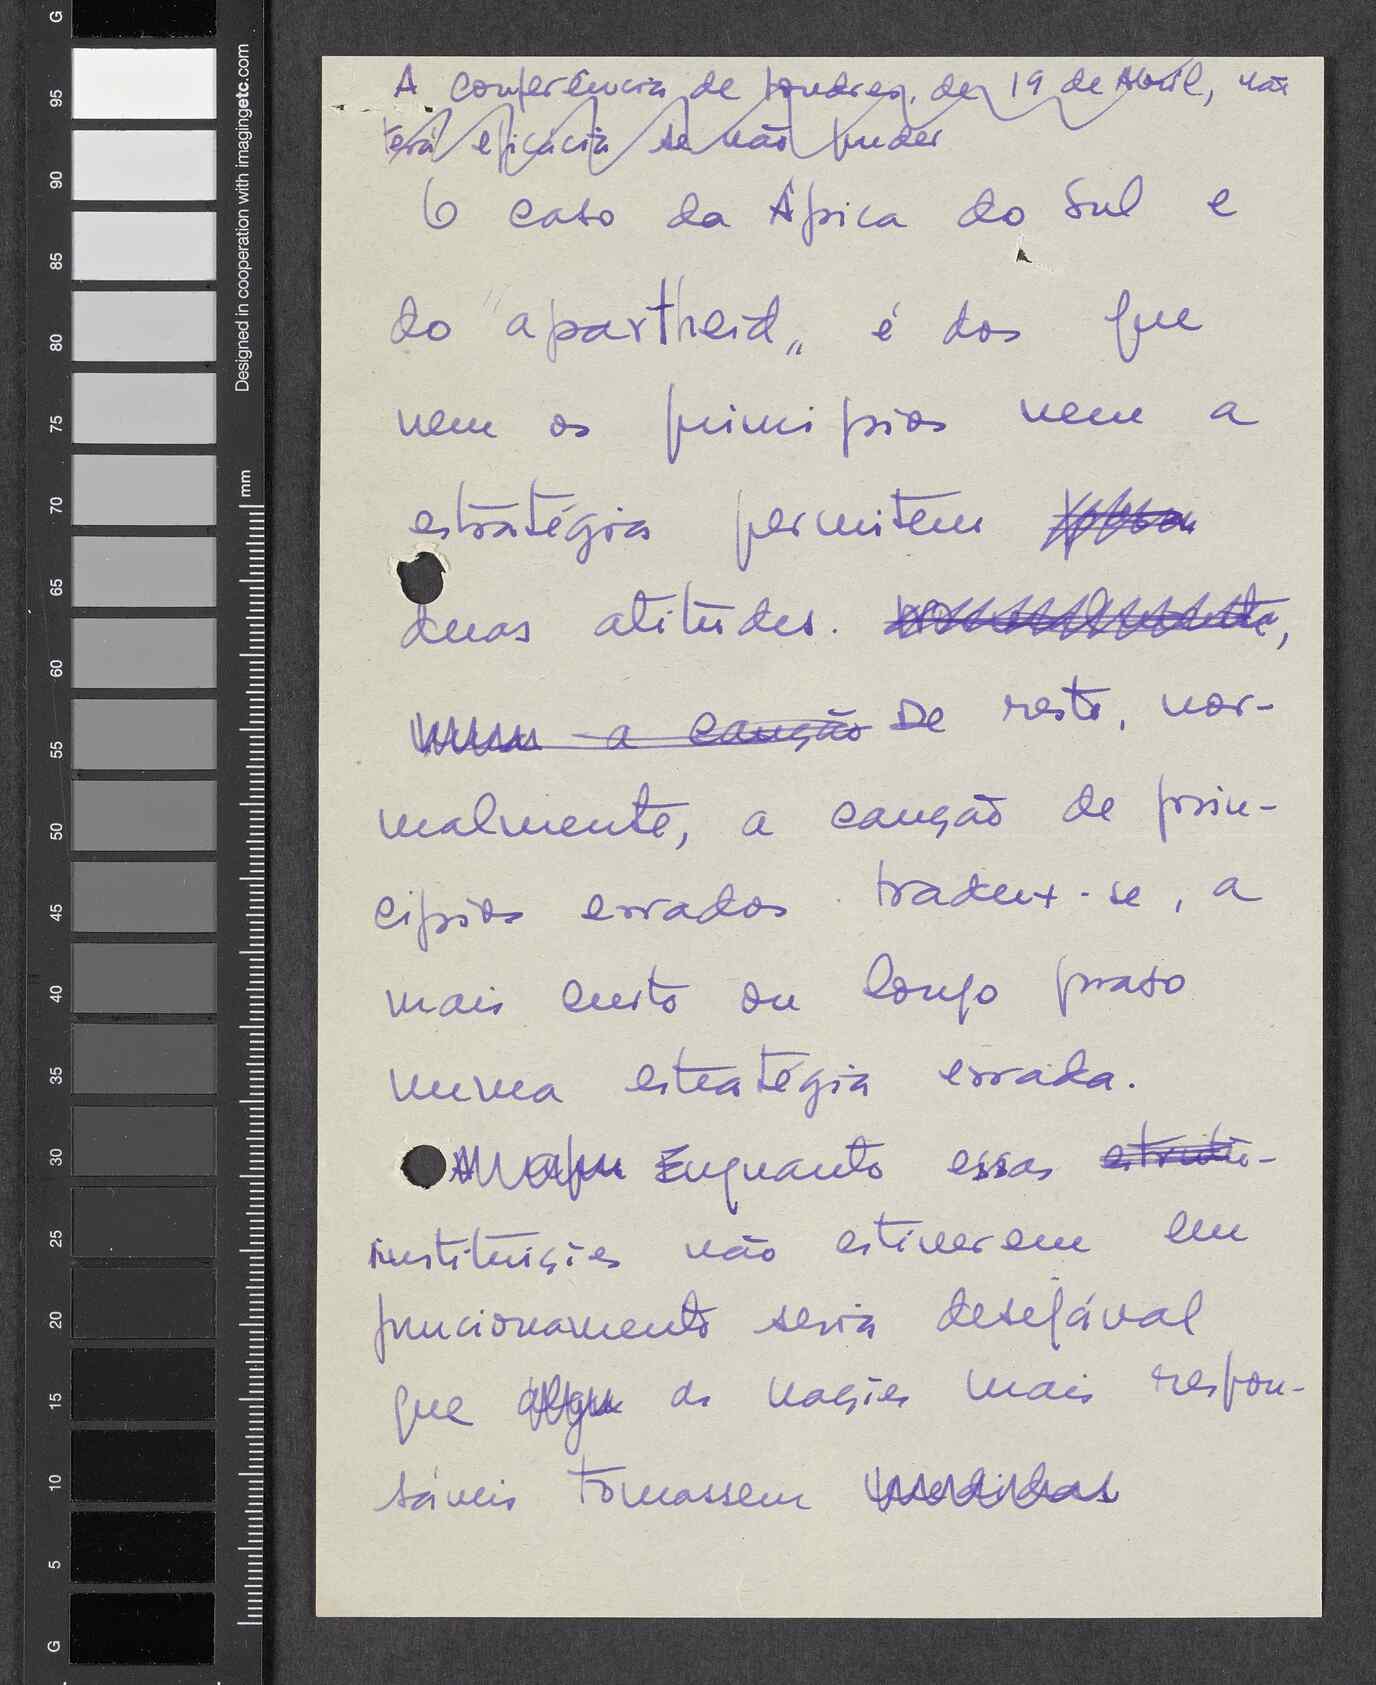 A conferência de Londres, de 19 de Abril, não
terá eficácia se não puder
O caso da África do Sul e
do "apartheid„ é dos que
nem os princípios nem a
estratégia permitem
duas atitudes.
a caução De resto, nor-
malmente, a caução de prin-
cípios errados tradux-se, a
mais curto ou longo praso
numa estratégia errada.
Enquanto essas estrutu-
instituições não estiverem em
funcionamento seria desejável
que algu as nações mais respon-
sáveis tomassem medidas
G
95
90
85
80
75
70
65
60
55
50
45
40
35
30
25
20
15
10
5
G
Designed in cooperation with imagingetc.com
mm